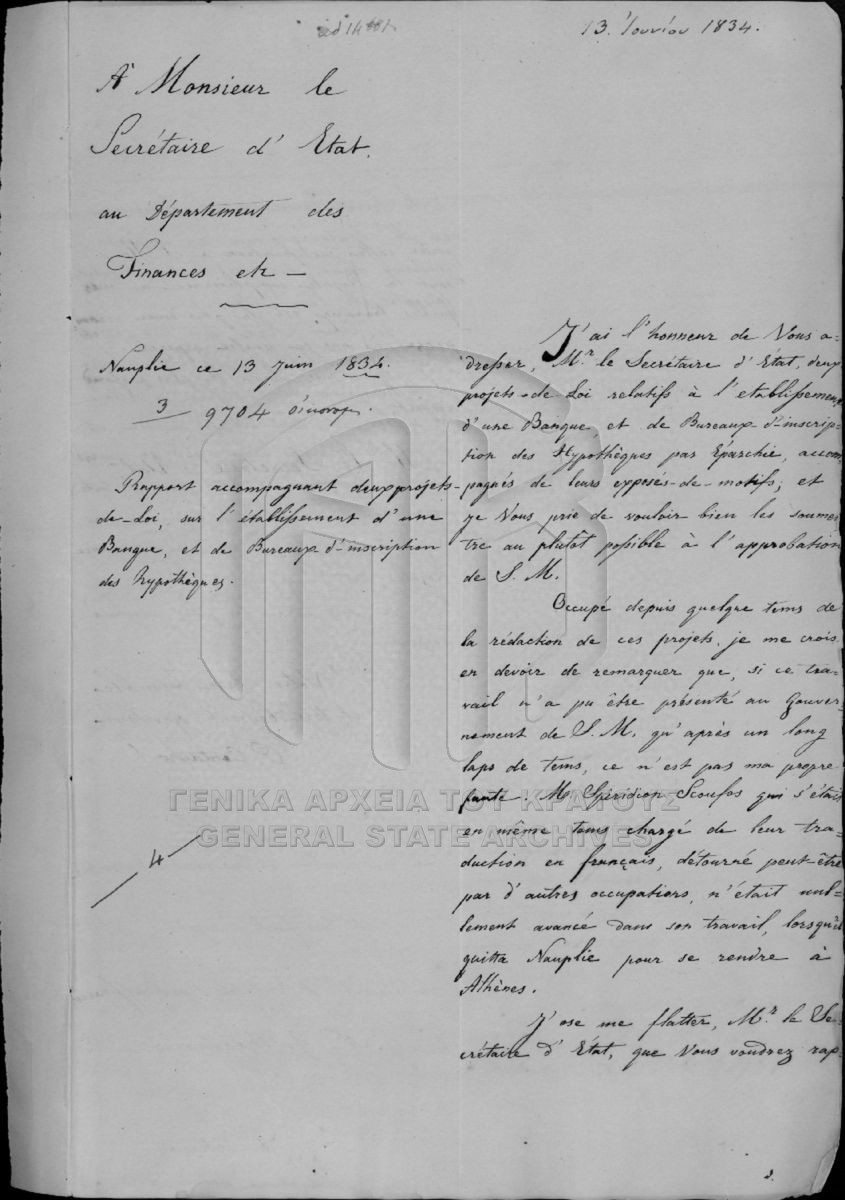 13. Ἰουνίου 1834.
A' Monsieur le
Secrétaire d'Etat.
au Département des
Finances etc —
Nauplie ce 13 Juin 1834.
3 9704
Rapport accompagnant deux projets-
de-Loi, sur l'établissement d'une
Banque, et de Bureaux d'inscription
des hypothèques.
4
J'ai l'honneur de Vous a-
dresser, Mr. le Secrétaire d'Etat, deux
projets-de Loi relatifs à l'etablissement
d'une Banque, et de Bureaux d'inscrip-
tion des Hypothèques par Eparchie, accom
pagnés de leurs exposés-de-motifs; et
je Vous prie de vouloir bien les soumet-
tre au plutôt possible à l'approbation
de S. M.
Occupé depuis quelque tems de
la rédaction de ces projets, je me crois
en devoir de remarquer que, si ce tra-
vail n'a pu être présenté au Gouver-
nement de S. M. qu'après un long
laps de tems, ce n'est pas ma propre
faute. Mr Spiridion Scoufos qui s'était
en même tems chargé de leur tra-
duction en français, détourné peut-être
par d'autres occupations, n'était nul-
lement avancé dans son travail, lorsqu'il
quitta Nauplie pour se rendre à
Athènes.
J'ose me flatter, Mr. le Se-
crétaire d'Etat, que Vous voudrez rap-
2.
ΓΕΝΙΚΑ ΑΡΧΕΙΑ ΤΟΥ ΚΡΑΤΟΥΣ
GENERAL STATE ARCHIVES